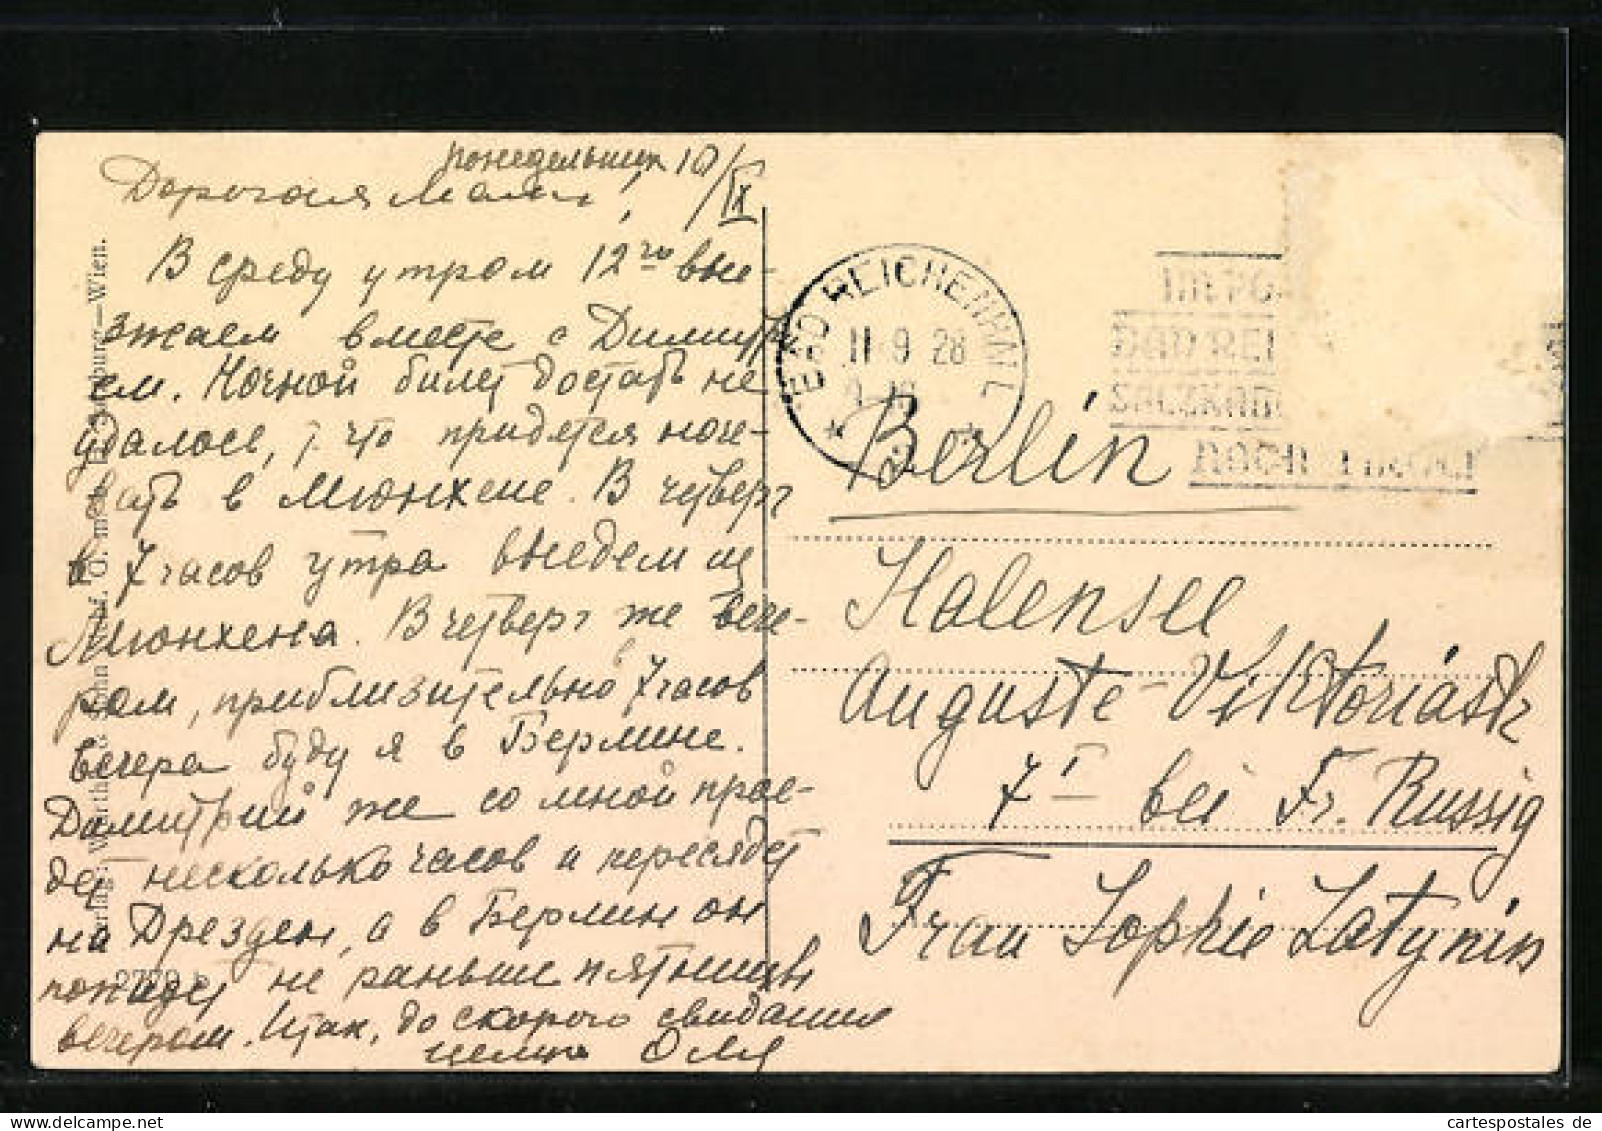 понедельник 10/IX
Дорогая Мама!
В среду утром 12го выез-
зжаем вместе с Димитри-
ем. Ночной билет достать не
удалось, т. что придется ноче-
вать в Мюнхене. В четверг
в 7 часов утра выедем из
Мюнхена. В четверг же вече-
ром, приблизительно в 7 часов
вечера буду я в Берлине.
Димитрий же со мной прое-
дет несколько часов и пересядет
на Дрезден, а в Берлин он
попадет не раньше пятницы
вечером. Итак, до скорого свидания
целую Оля
BAD REICHENHALL
11 9 28
BAD REI
SALZKAM
NACH
Berlin
Halensee
Auguste-Viktoriastr
7 I bei Fr. Russig
Frau Sophie Latynin
Wien.
2779
cartespostales de
www.cartespostales.de